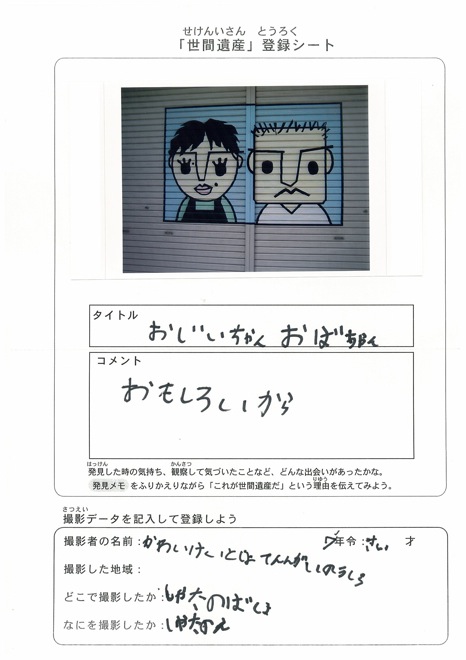 せけんいさん とうろく
「世間遺産」登録シート
タイトル
おじいちゃん おばちゃん
コメント
おもしろいから
はっけん かんさつ
発見した時の気持ち、観察して気づいたことなど、どんな出会いがあったかな。
りゆう
発見メモ をふりかえりながら「これが世間遺産だ」という理由を伝えてみよう。
さつえい
撮影データを記入して登録しよう
撮影者の名前： 年令： さい 才
撮影した地域：
どこで撮影したか：
なにを撮影したか：